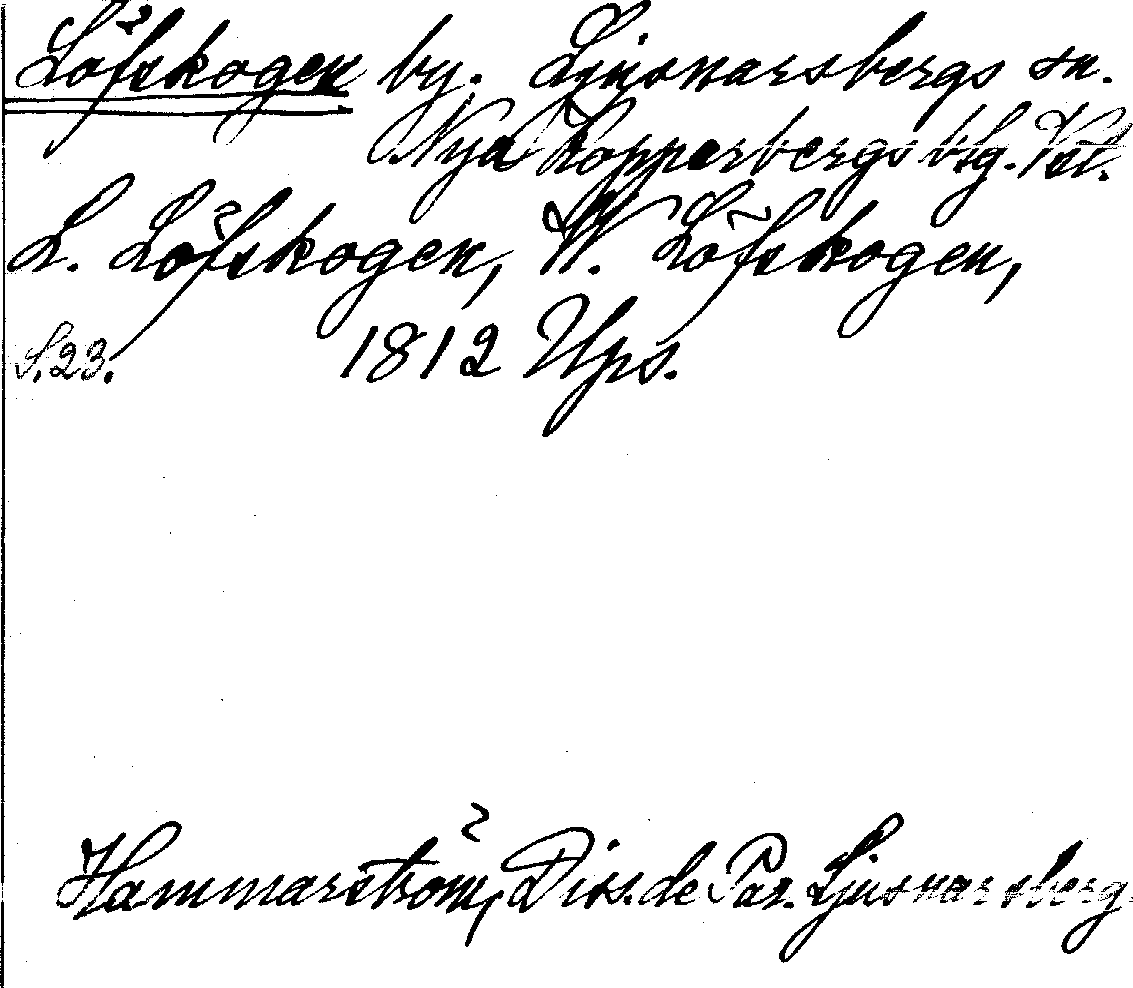 Löfskogen by. Ljusnarsbergs sn.
Nya Kopparbergs bsg. Vstl.
L. Löfskogen, W. Löfskogen,
S. 23. 1812 Ups.
Hammarström, Diss. de Par. Ljusnarsberg